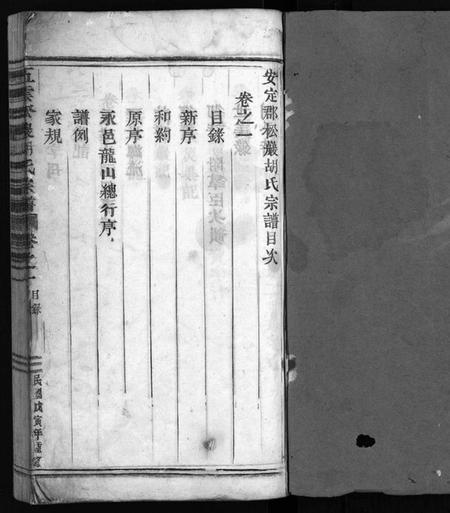 安定郡松巖胡氏宗譜目次
卷之一
目錄
新序
和約
原序
永邑龍山總行序
譜例
家規
胡氏宗譜
卷之一
目錄
民國戊寅年重